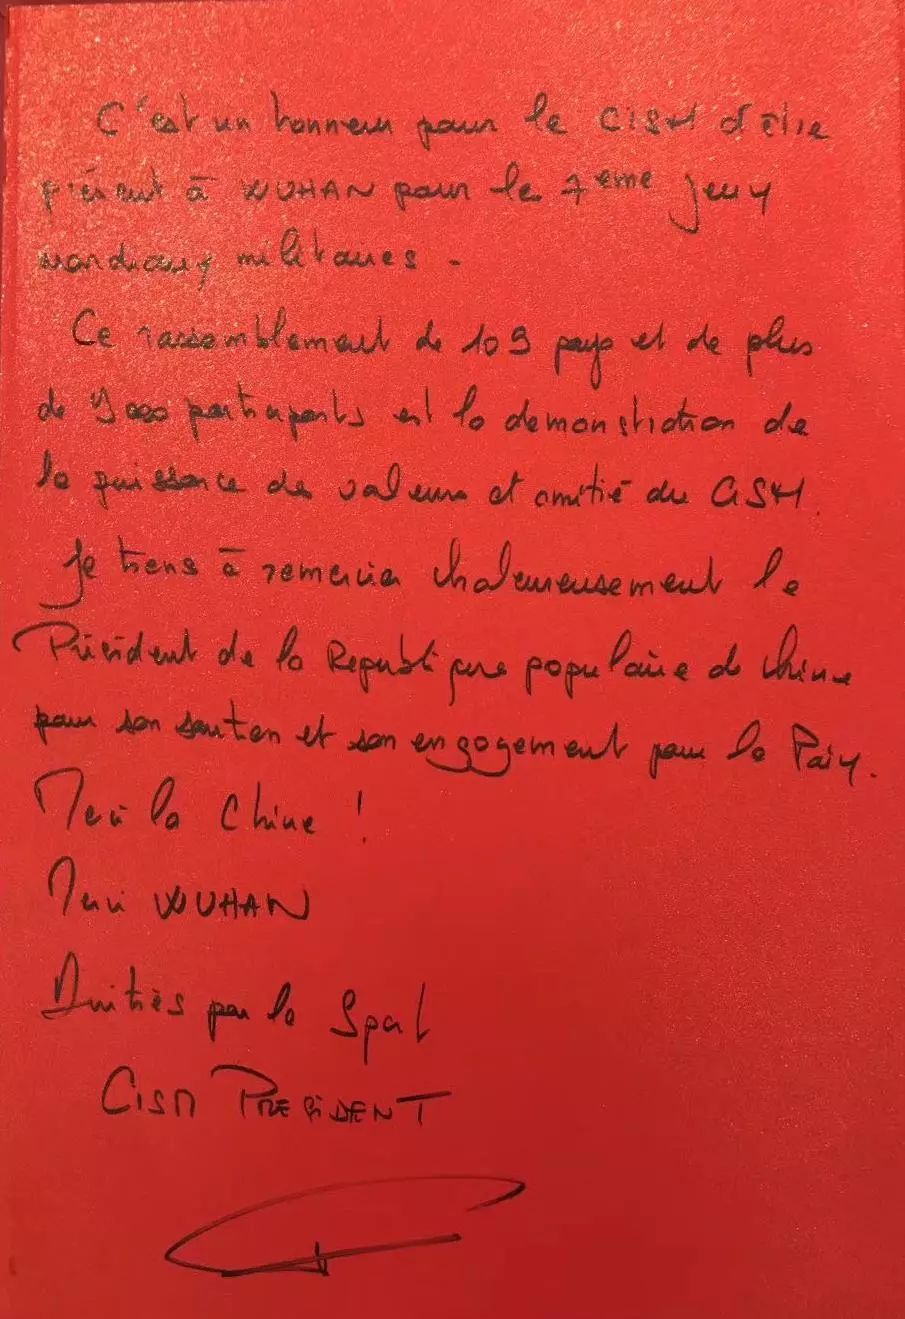 C'est un honneur pour le CISM d'être
présent à WUHAN pour le 7eme jeux
mondiaux militaires -
Ce rassemblement de 109 pays et de plus
de 9000 participants est la demonstration de
la puissance des valeurs et amitié du CISM.
Je tiens à remercier chaleureusement le
Président de la Republique populaire de Chine
pour son soutien et son engagement pour la Paix.
Merci la Chine !
Merci WUHAN
Amitiés par le Sport
CISM PRESIDENT